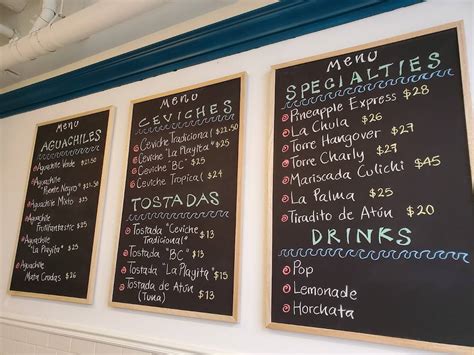 MENU
AGUACHILES
Aguachile Verde $21.50
Aguachile
"Aguachile Mixto $25
Aguachile
Aguachile
"La Playita" $25
Aguachile
$26
MENU
CEVICHES
Ceviche Tradicional $21.50
Ceviche "La Playita" $25
Ceviche "BC" $25
Ceviche Tropical $24
TOSTADAS
Tostada "Ceviche
Tradicional" $13
Tostada "BC" $13
Tostada "La Playita" $15
Tostada de Atún $13
(Tuna)
MENU
SPECIALTIES
Pineapple Express $28
La Chula $26
Torre Hangover $27
Torre Charly $27
Mariscada Culichi $45
La Palma $25
Tiradito de Atún $20
DRINKS
Pop
Lemonade
Horchata